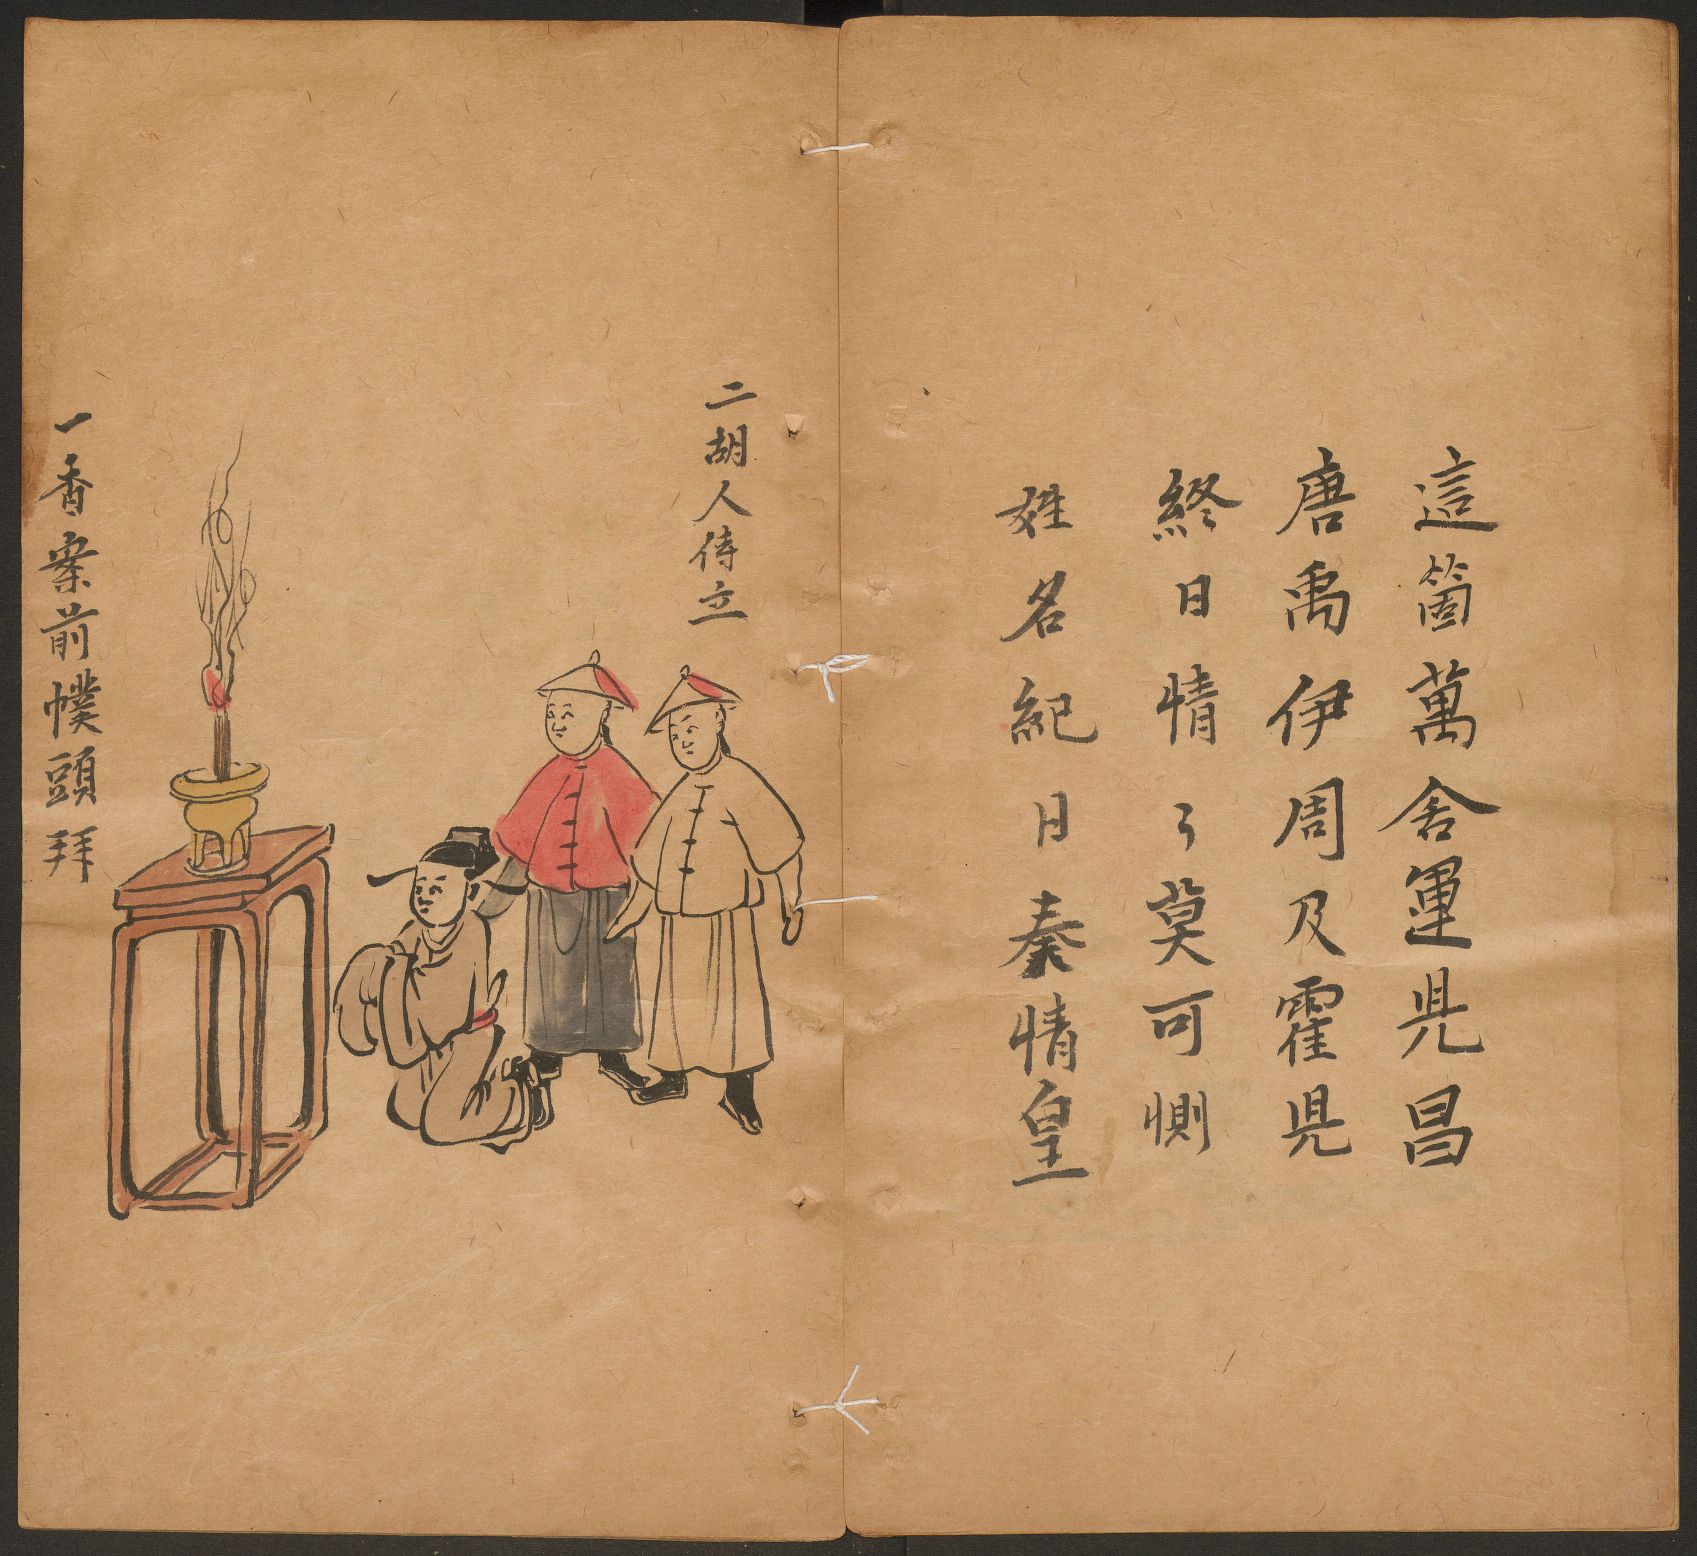 這箇萬舍運児昌
唐禹伊周及霍児
終日情々莫可惻
姓名紀日秦情皇
二胡人侍立
一香案前幞頭拜